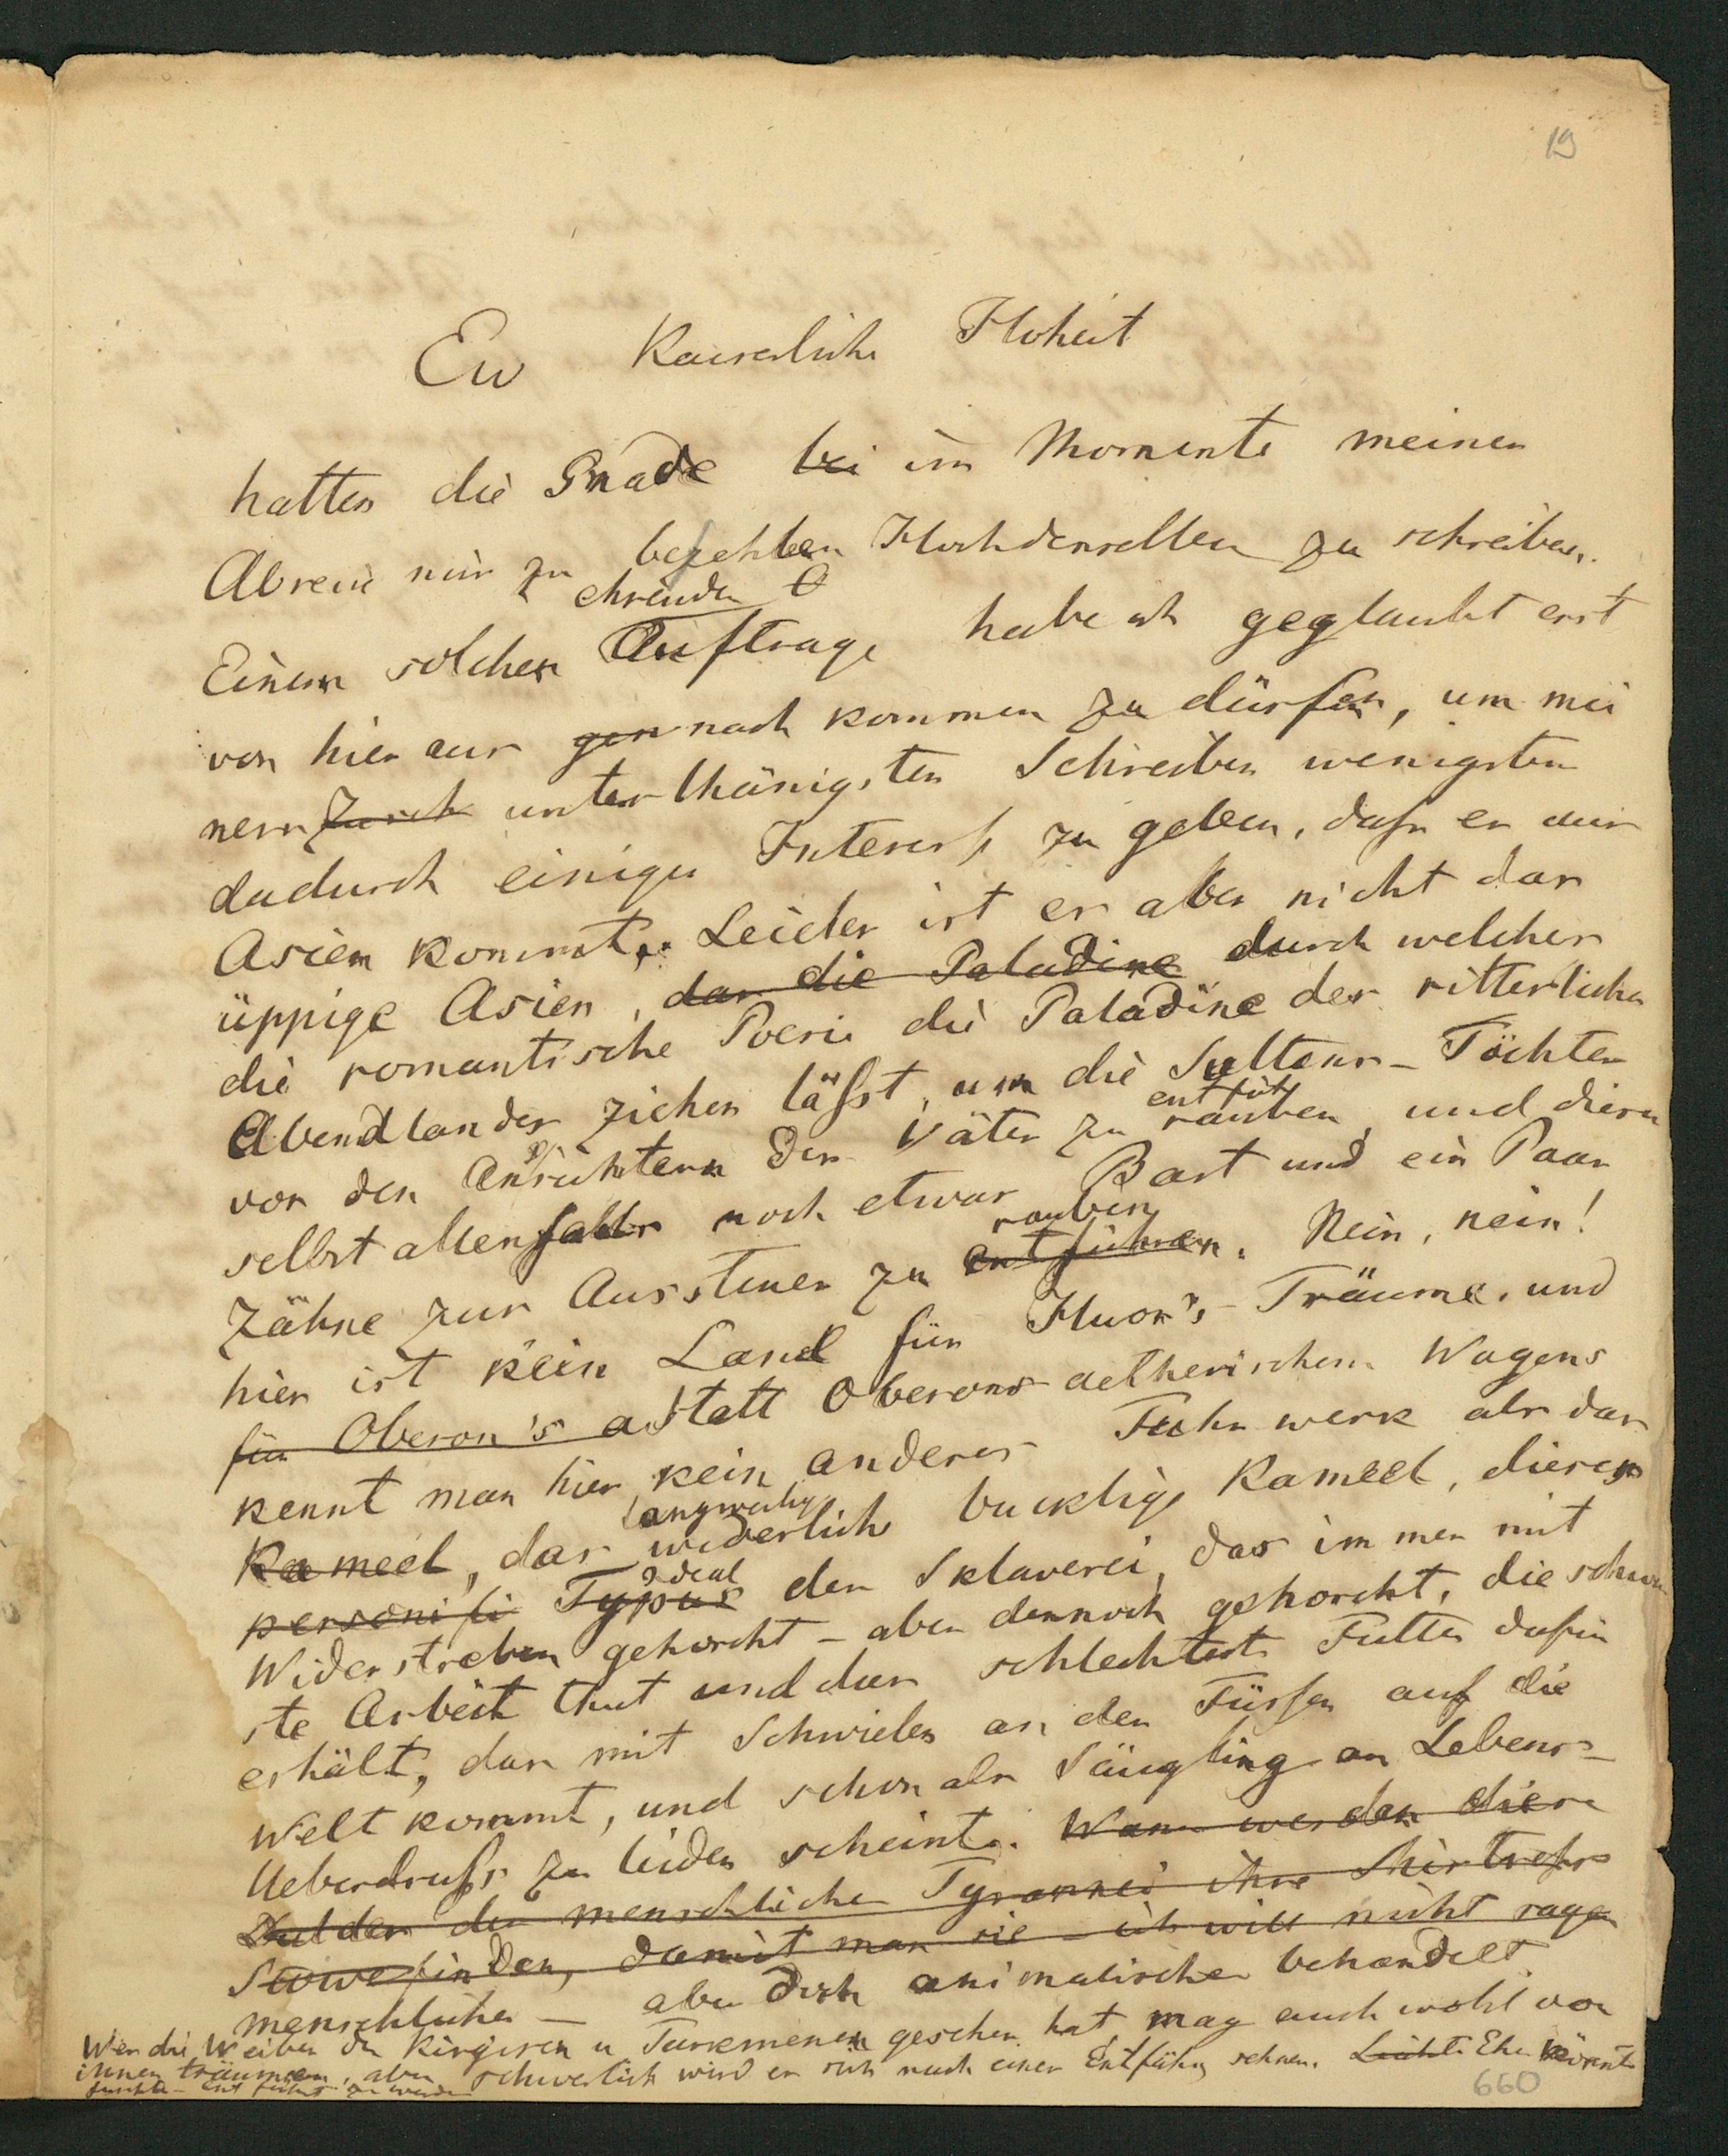 19
Ew Kaiserliche Hoheit
hatten die Gnade bei im Momente meiner
Abreise mir zu befehlen Hochdenselben zu schreiben.
ehrenden
Einem solchen Auftrage habe ich geglaubt erst
von hier aus gen nach kommen zu dürfen, um mei
nem unterthänigsten Schreiben wenigstens
dadurch einiges Interesse zu geben, dass es aus
Asien kommt. Leider ist es aber nicht das
üppige Asien, das die Paladine durch welches
die romantische Poesie die Paladine des ritterlichen
Abendlandes ziehen lässt, um die Sultans-Töchter
entfüh
vor den Angesichtern der Väter zu rauben, und diesen
selbst allenfalls noch etwas Bart und ein Paar
rauben
Zähne zur Aussteuer zu entführen. Nein, nein!
hier ist kein Land für Huon's-Träume, und
für Oberon's a statt Oberons aetherischen Wagens
kennt man hier kein anderes Fuhrwerk als das
langweilige
Kameel, das widerliche bucklige Kameel, dieses
Ideal
personifi Typus der Sklaverei, das immer mit
Widerstreben gehorcht – aber dennoch gehorcht, die schwer
ste Arbeit thut und das schlechteste Futter dafür
erhält, das mit Schwielen an den Füssen auf die
Welt kommt, und schon als Säugling an Lebens-
Ueberdruss zu leiden scheint. Wann werden diese
Dulder der menschlichen Tyrannei ihre
Stowe finden, damit man sie – ich will nicht sagen
menschlicher – aber doch animalischer behandelt.
Wer die Weiber der Kirgisen u Turkmenen gesehen hat, mag auch wohl von
ihnen träumen, aber schwerlich wird er sich nach einer Entführg sehnen. Leichte Ehe könnte
entführt zu werden
660